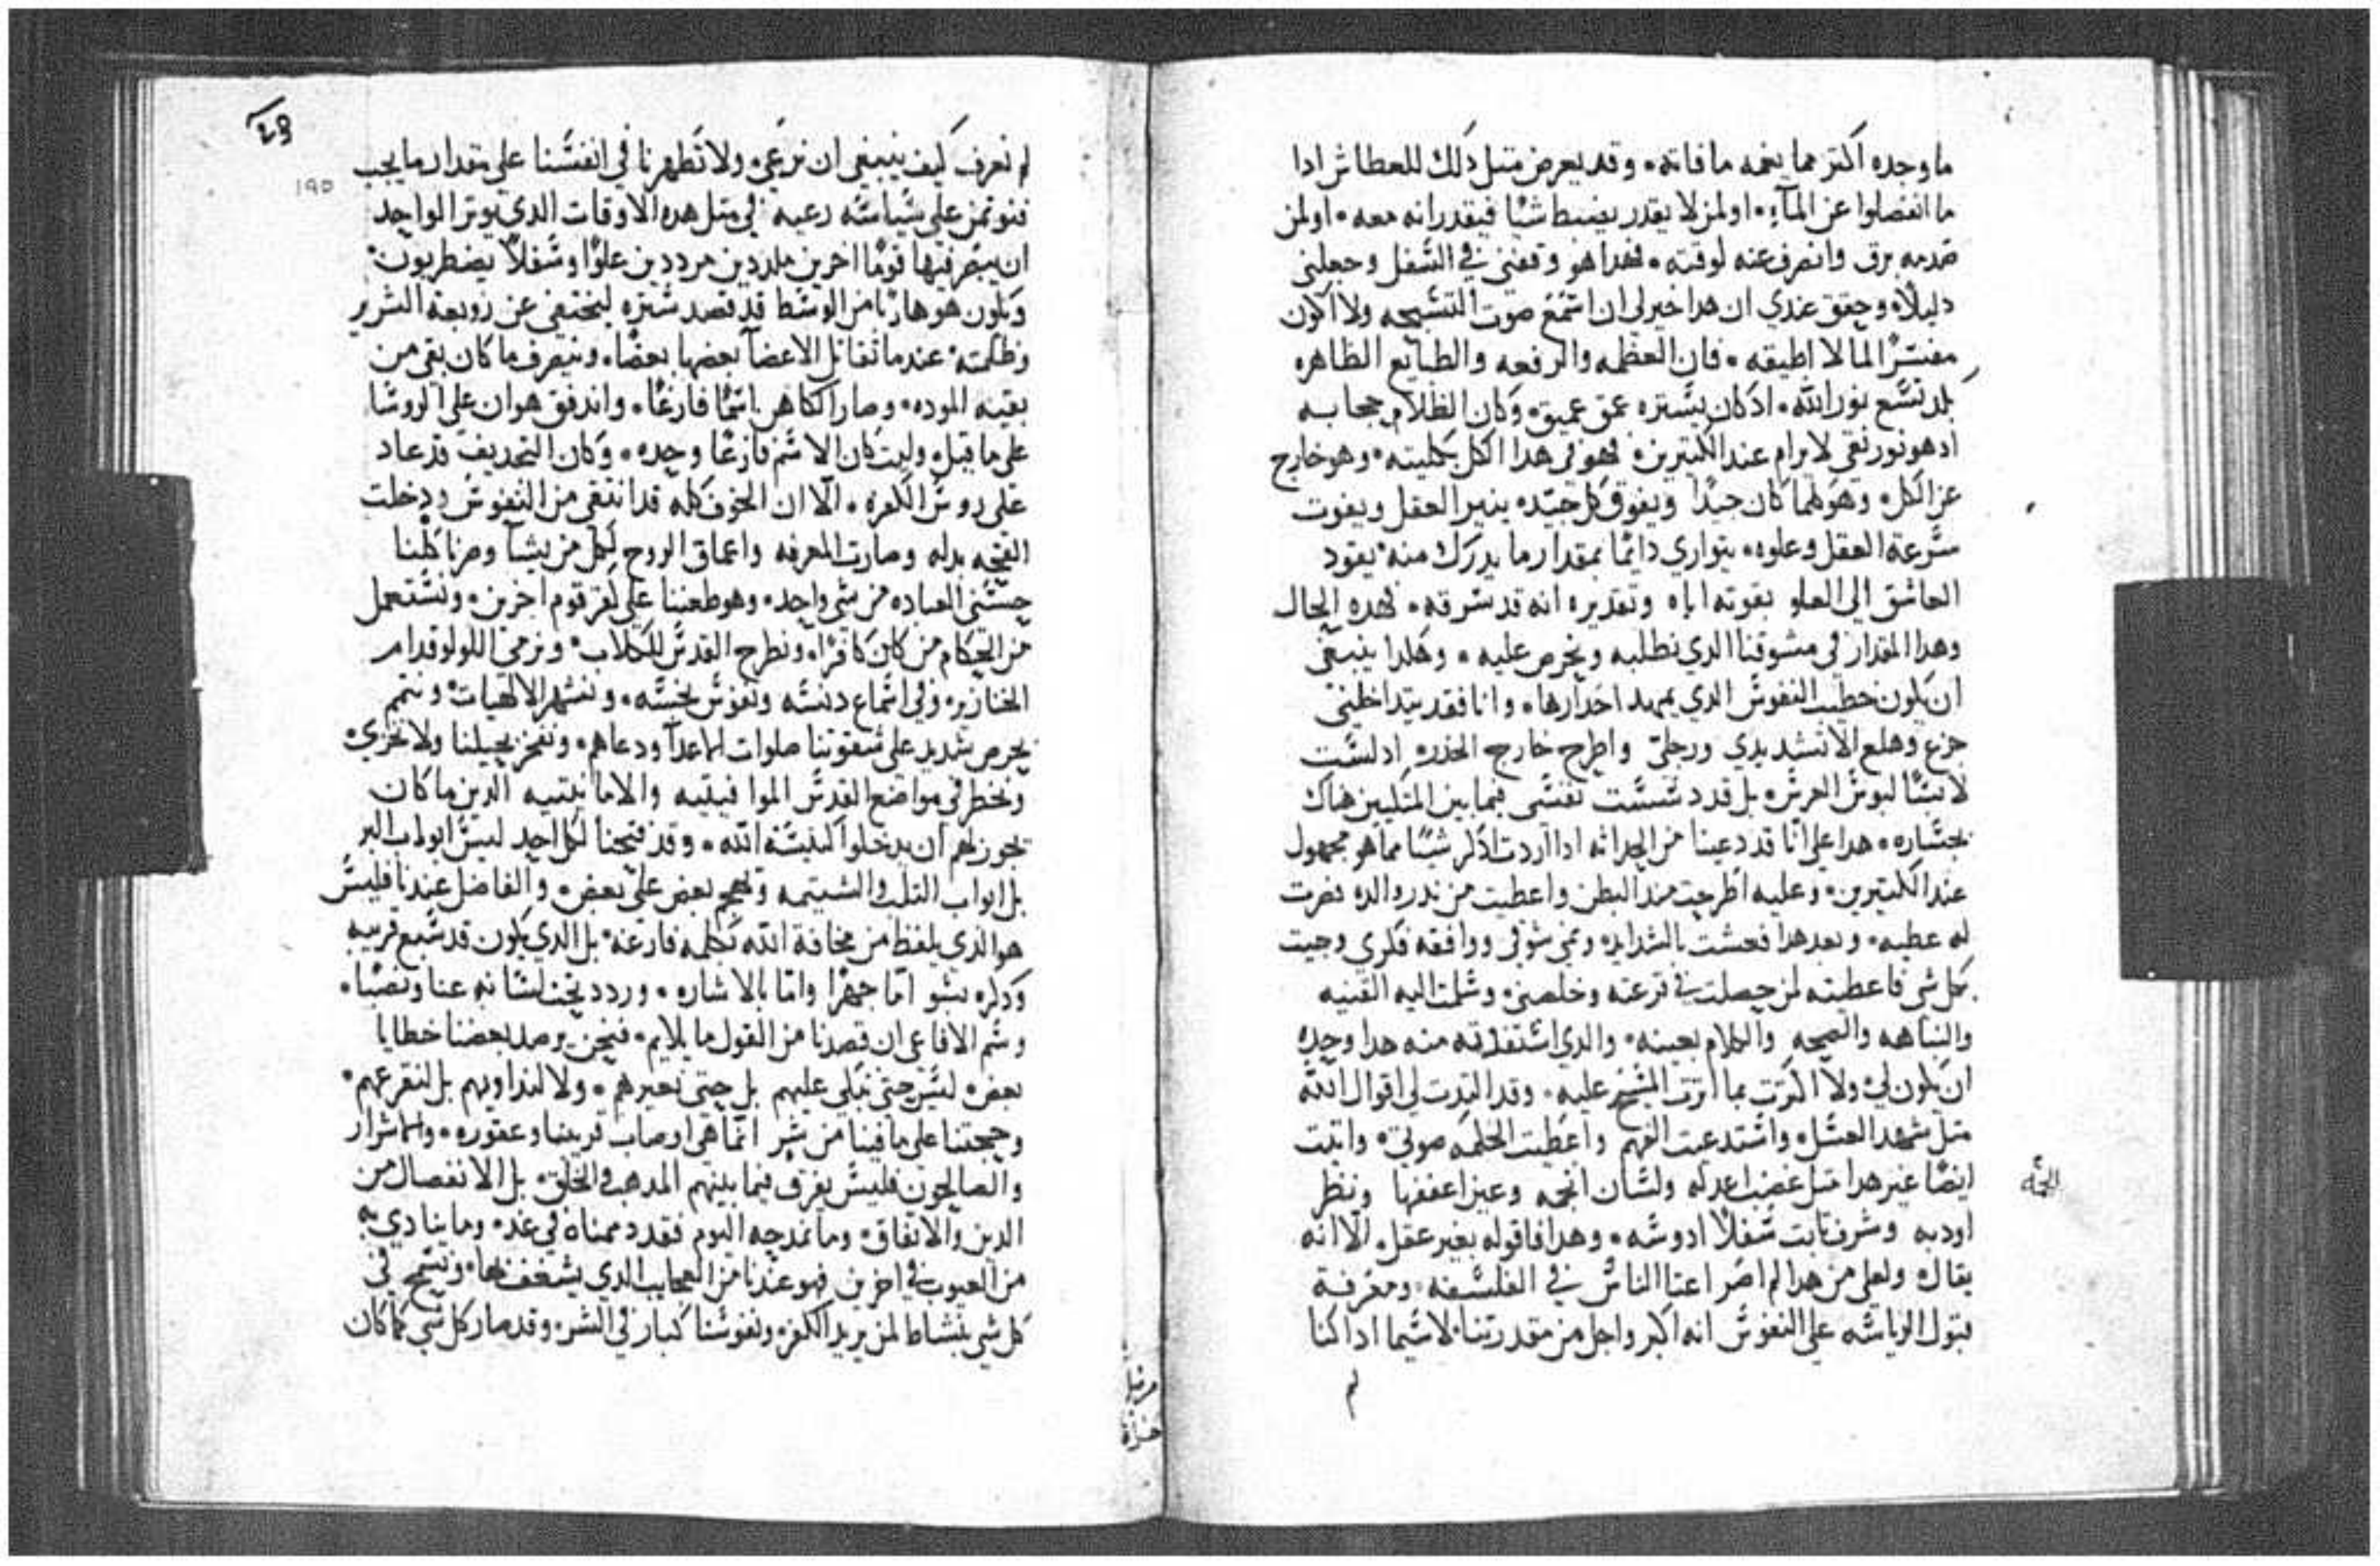 ما وجده اكتر مما يغمه ما فاته٠ وقد يعرض متل دلك للعطاش ادا
ما انفصلوا عن المآء٠ اولمن لا يقدر يضبط شيا فيقدر انه معه٠ اولمن
صدمه برق وانصرف عنه لوقته٠ فهدا هو وقفنى في السفل وجعلنى
دليلًا٠ وحقق عندي ان هدا خير لى ان استمع صوت التسبحه ولا اكون
مفسرًا لما لا اطيقه٠ فان العظمه والرفعه والطبايع الظاهره
بلد تسع نور الله٠ ادكان يستره عمق عميق٠ وكان الظلام حجابه
ادهو نور نقى لا يرام عند الكتيرين٠ فهو فى هدا الكل بكليته٠ وهو خارج
عن الكل٠ وهو كلما كان جيدًا ويفوق كل جيد٠ ينير العقل ويفوت
سرعة العقل وعلوه٠ يتوارى دائمًا بمقدار ما يدرك منه٠ يقود
العاشق الى العلو بفوته اياه وتقديره انه قد سرقه٠ فهده الحال
وهدا المقدار فى مشوقنا الدي نطلبه ونحرص عليه٠ وهكدا ينبغى
ان يكون خطيب النفوس الدي يمهد اخدارها٠ وانا فقد يتداخلنى
جزع وهلع الا تشد يدي ورجلى واطرح خارج الخدر٠ اد لست
لابسًا لبوس العرس٠ بل قد دسست نفسى فيما بين المتكيين هناك
بجساره٠ هدا على انا قد دعينا من الحداثه ادا اردت ادكر شيًا مما هو مجهول
عند الكتيرين٠ وعليه اطرحت مند البطن واعطيت من ندر والده نصرت
له عطيه٠ وبعد هدا فعشت بالشدايد٠ ونمى شوقى ووافقه فكري وجيت
بكل شى فاعطيته لمن حصلت في قرعته وخلصنى٠ وسلمت اليه القنيه
والنباهه والصحه والكلام بعينه٠ والدي استفدته منه هدا وحده
ان يكون لى٠ ولا اكترت بما اترت المسيح عليه٠ وقد التدت لى اقوال الله
متل شهد العسل٠ واستدعيت الفهم واعطيت الحكمه صوتى٠ واتيت
ايضًا غير هدا متل غضب اعدله ولسان الجمه وعين اعففها ونظر
اودبه وشرف تابت سفلًا ادوسه٠ وهدا فاقوله بغير عقل٠ الا انه
يقال٠ ولعلى من هدا لم اصر اعتا الناس في الفلسفه٠ ومعرفة
قبول الرياسه على النفوس انه اكبر واجل من مقدرتنا٠ لا سيما ادا كنا
لم
الجمه
195
لم نعرف كيف ينبغى ان نرعى٠ ولا تطهرنا فى انفسنا على مقدار ما يجب
فنوتمن على سياسة رعيه فى متل هده الاوقات الدي يوتر الواحد
ان يبصر فيها قومًا اخرين ملددين مرددين علوًا وسفلًا يضطربون٠
ويكون هو هاربًا من الوسط قد قصد ستره ليختفى عن زوبعة الشرير
وظلمته٠ عندما تقاتل الاعضآ بعضها بعضًا٠ وينصرف ما كان بقى من
بقيه الموده٠ وصار الكاهن اسمًا فارغًا٠ واندفق هوان على الروسا
على ما قيل٠ وليت كان الاسم فارغًا وحده٠ وكان التجديف قد عاد
على روس الكفره٠ الا ان الخوف كله قد انتفى من النفوس ودخلت
القحه بدله وصارت المعرفه واعماق الروح لكل من يشآ وصرنا كلنا
حسنى العباده من شى واحد٠ وهو طعننا على كفر قوم اخرين٠ ونستعمل
من الحكام من كان كافرًا٠ ونطرح القدس للكلاب٠ ونرمى اللولو قدام
الخنازير٠ وفى اسماع دنسه ونفوس نجسه٠ ونشهر الالهيات٠ ونتمم
بحرص شديد على شقوتنا صلوات الاعدآ ودعاهم٠ ونفخر بحيلنا ولا نخزى٠
ونخطر فى مواضع القدس الموا فيتيه والامانيتيه الدين ما كان
يجوز لهم ان يدخلوا كنيسة الله٠ وقد فتحنا لكل احد ليس ابواب البر
بل ابواب التلب والشتيمه وتهجم بعض على بعض٠ والفاضل عندنا فليس
هو الدي يلفظ من مخافة الله بكلمه فارغه٠ بل الدي يكون قد سبع قريبه
ودكره بسو اما جهرًا واما بالاشاره٠ وردد تحت لسانه عنا ونصبًا٠
وسم الافاعى ان قصدنا من القول ما يلايم٠ فنحن يرصد بعضنا خطايا
بعض٠ ليس حتى نبكى عليهم بل حتى نعيرهم٠ ولا لنداويهم بل لنقرعهم٠
وحجتنا على ما فينا من شر انما هى اوصاب قريبنا وعقوره٠ والاشرار
والصالحون فليس يفرق فيما بينهم المدهب والخلق٠ بل الانفصال من
الدين والاتفاق٠ وما نمدحه اليوم فقد دممناه فى غد٠ وما ينادي به
من العيوب في اخرين فهو عندنا من العجايب الدي يشغف بها٠ ونسمح فى
كل شى بنشاط لمن يريد الكفر٠ ونفوسنا كبار فى الشر٠ وقد صار كل شى كما كان